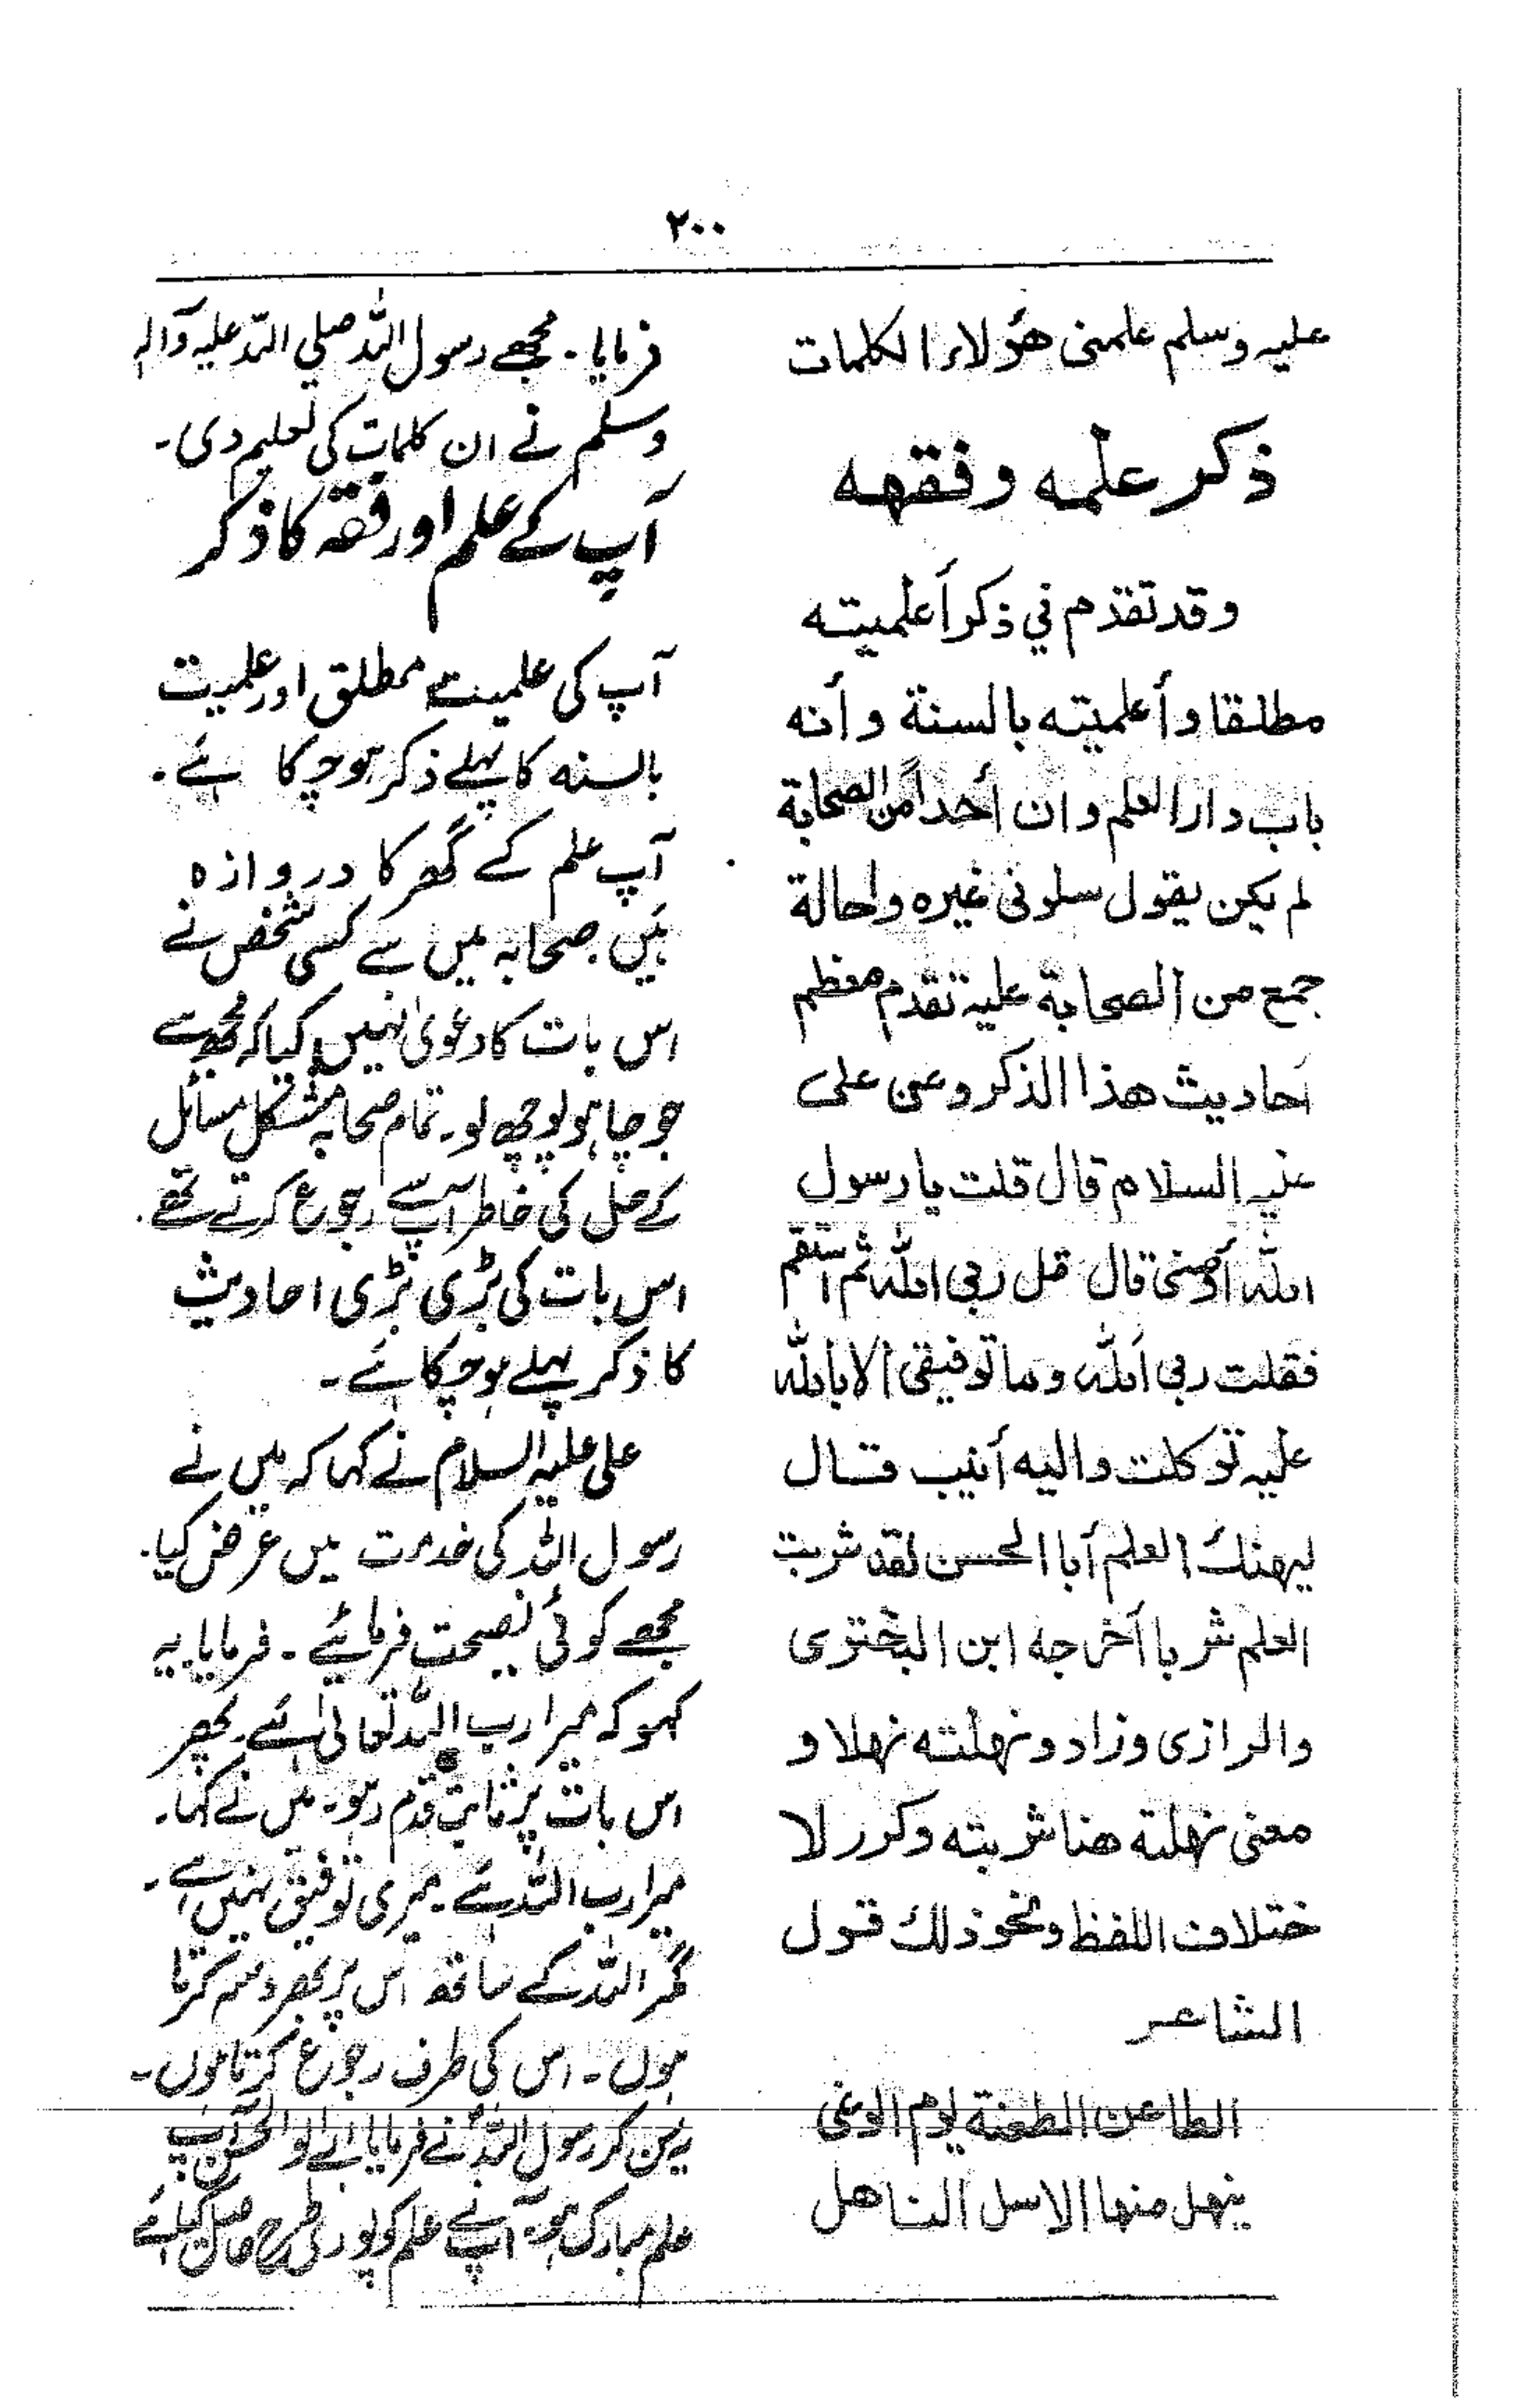 ۲۰۰
عليہ وسلم علمنی هؤلاء الكلمات
ذكر علمه وفقهه
وقد تقدم في ذكر أعلميته
مطلقا وأعلميته بالسنة وأنه
باب دار العلم وان أحداً من الصحابة
لم يكن يقول سلونی غيره واحالة
جمع من الصحابة عليه تقدم معظم
أحاديث هذا الذكر وعن على
عليہ السلام قال قلت يا رسول
الله أوصنی قال قل ربی الله ثم استقم
فقلت ربی الله وما توفيقی الا بالله
عليہ توكلت واليه أنيب قال
ليهنك العلم أبا الحسن لقد شربت
العلم شربا أخرجه ابن البختری
والرازی وزاد ونهلته نهلا و
معنی نهلته هنا شربته وكرر لا
ختلاف اللفظ ونحو ذلك قول
الشاعر
الطاعن الطعنة يوم الوغی
ينهل منها الاسل الناهل
فرمایا۔ مجھے رسول اللہ صلی اللہ علیہ وآلہٖ
وسلم نے ان کلمات کی تعلیم دی۔
آپ کے علم اور فقہ کا ذکر
آپ کی علمیت مطلق اور علمیت
بالسنہ کا پہلے ذکر ہوچکا ہے۔
آپ علم کے گھر کا دروازہ
ہیں۔ صحابہ میں سے کسی شخص نے
اس بات کا دعویٰ نہیں کیا کہ مجھ سے
جو چاہو پوچھ لو۔ تمام صحابہ مشکل مسائل
کے حل کی خاطر آپ سے رجوع کرتے تھے۔
اس بات کی بڑی بڑی احادیث
کا ذکر پہلے ہوچکا ہے۔
علی علیہ السلام نے کہا کہ میں نے
رسول اللہ کی خدمت میں عرض کیا۔
مجھے کوئی نصیحت فرمائیے۔ فرمایا یہ
کہو کہ میرا رب اللہ تعالیٰ ہے۔ پھر
اس بات پر ثابت قدم رہو۔ میں نے کہا۔
میرا رب اللہ ہے۔ میری توفیق نہیں ہے۔
مگر اللہ کے ساتھ اس پر بھروسہ کرتا
ہوں۔ اس کی طرف رجوع کرتا ہوں۔
یہ سن کر رسول اللہ نے فرمایا اے ابو الحسن آپ
علم مبارک ہو۔ آپ نے علم کو پوری طرح حاصل کیا ہے